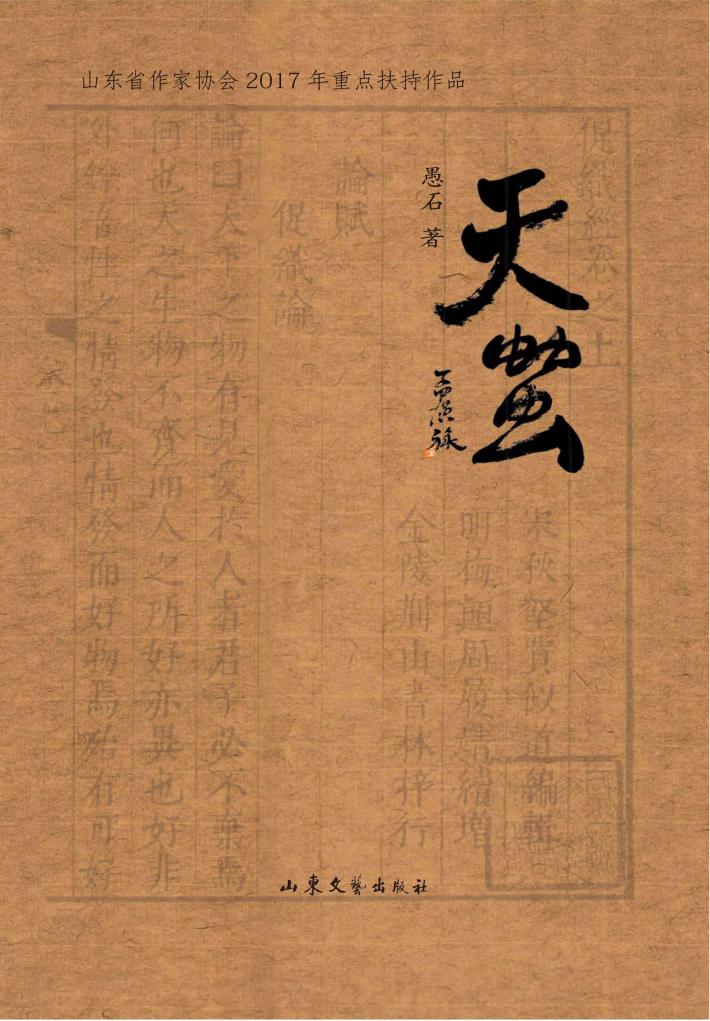 山东省作家协会2017年重点扶持作品
天蛩
愚石 著
促織經卷之上
宋秋壑賈似道編輯
明梅顛周履靖續增
金陵荊山書林梓行
論賦
促織論
論曰天下之物有見愛於人者君子必不棄焉
何也天之生物不齊而人之所好亦異也好非
外鑠吾性之情發也情發而好物焉殆有可好
山東文藝出版社